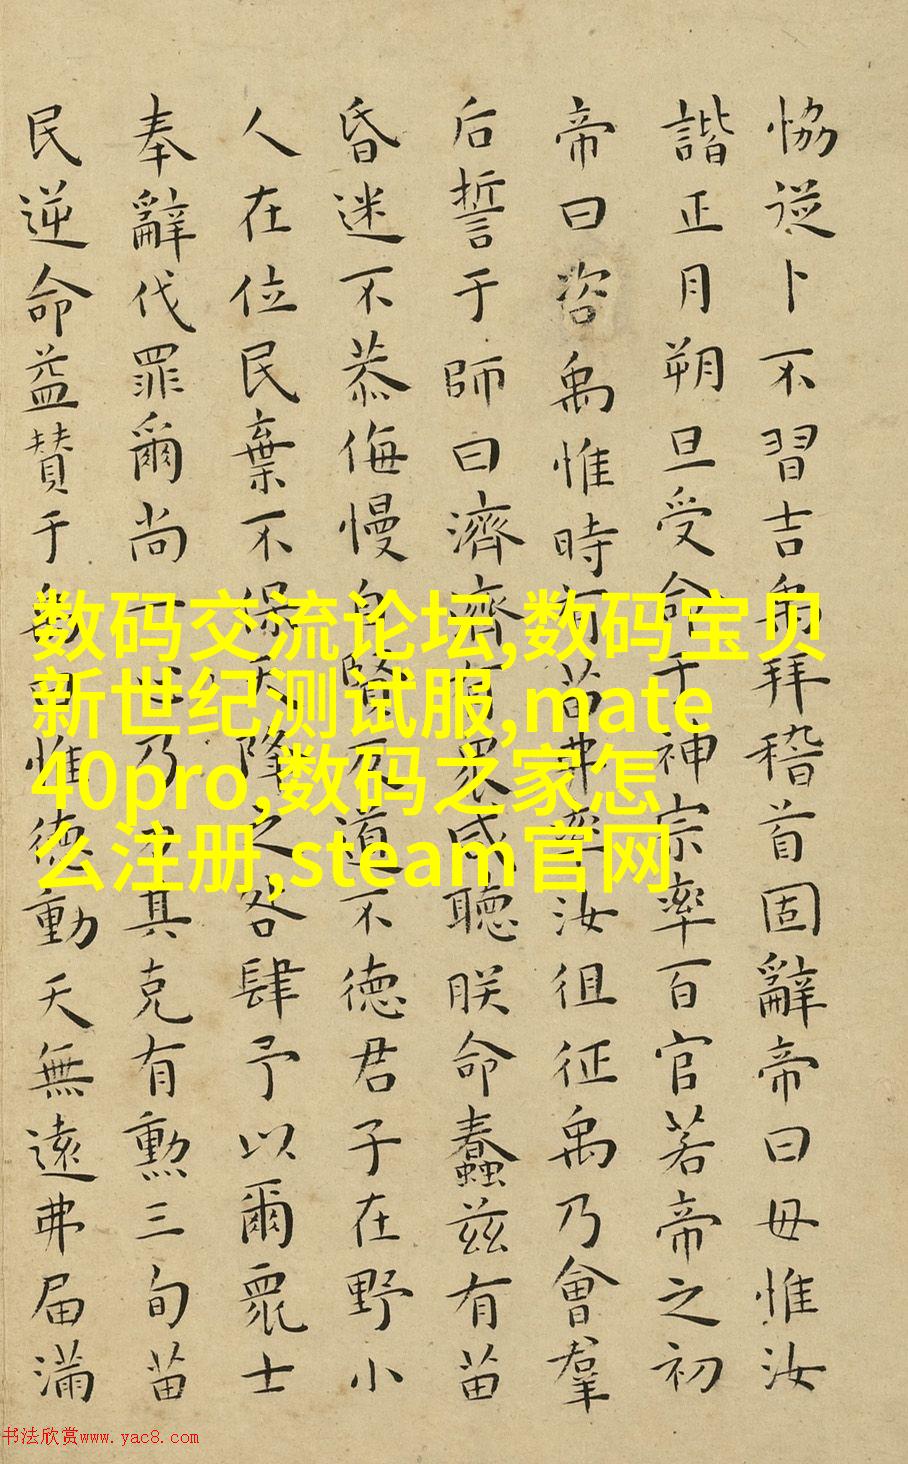 恊從卜不習吉禹拜稽首固辭帝曰毋惟汝
諧正月朔旦受命于神宗率百官若帝之初
帝曰咨禹惟時有苗弗率汝徂征禹乃會羣
后誓于師曰濟濟有衆咸聽朕命蠢兹有苗
昏迷不恭侮慢自賢反道不德君子在野小
人在位民棄不保天降之咎肆予以爾衆士
奉辭伐罪爾尚一乃其克有勳三旬苗
民逆命益贊于禹曰惟德動天無遠弗届滿
数码交流论坛,数码宝贝
新世纪测试服,mate
40pro,数码之家怎
么注册,steam官网
书法欣赏www.yac8.com